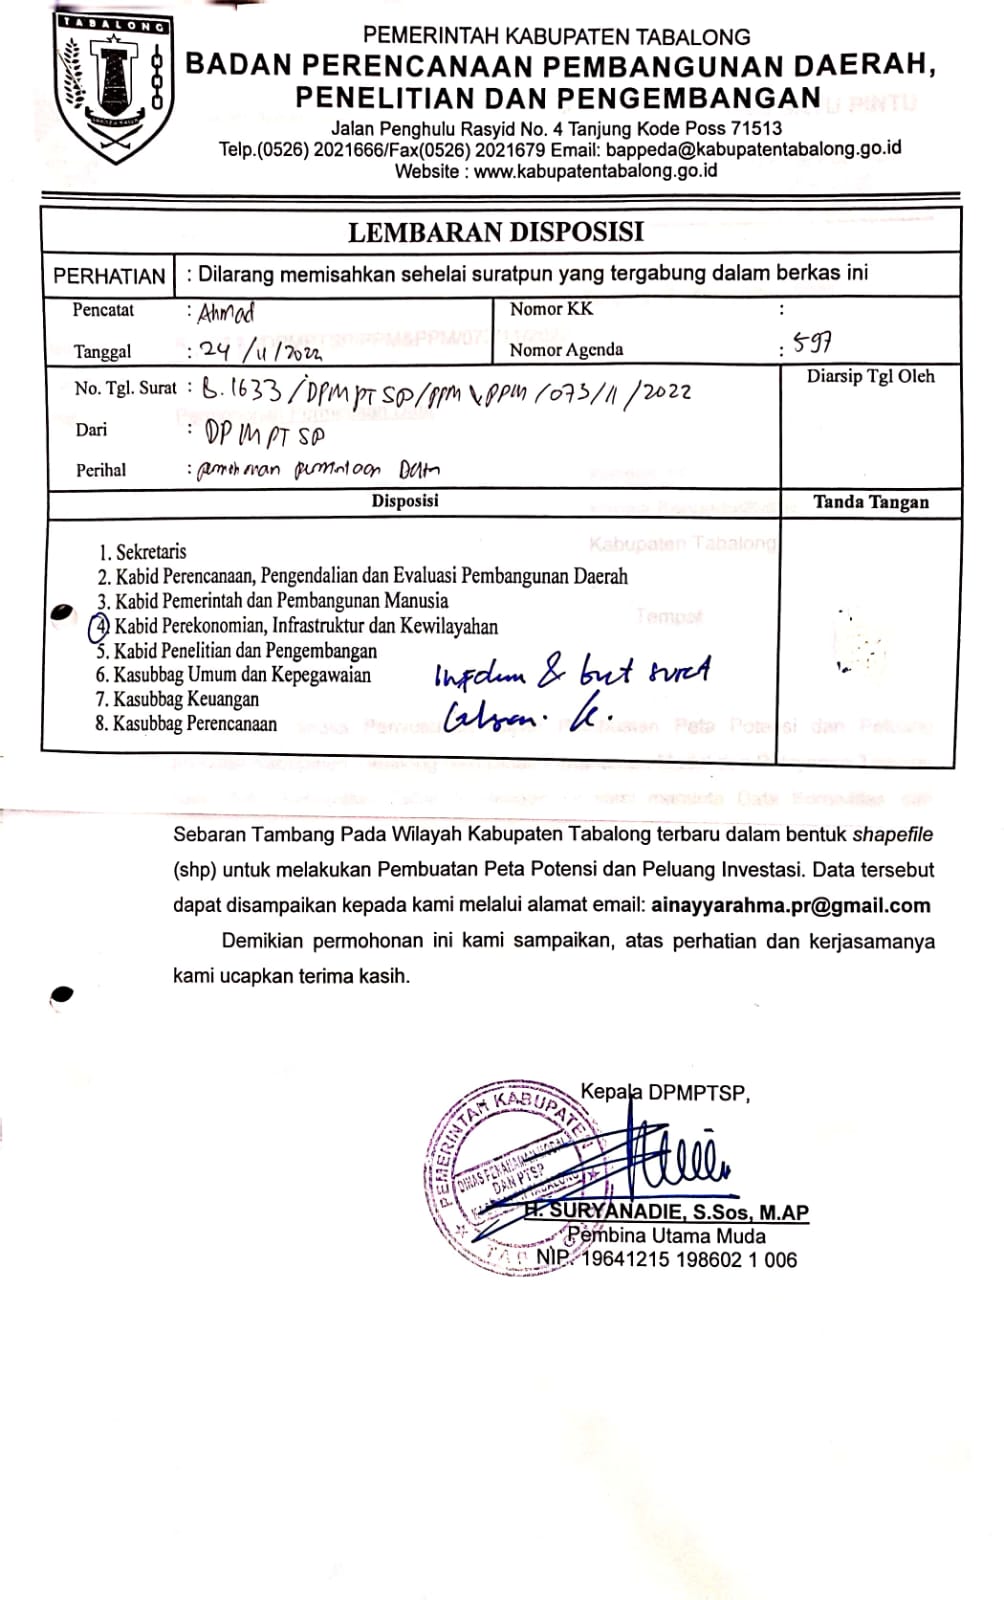 TABALONG
PEMERINTAH KABUPATEN TABALONG
BADAN PERENCANAAN PEMBANGUNAN DAERAH,
PENELITIAN DAN PENGEMBANGAN
Jalan Penghulu Rasyid No. 4 Tanjung Kode Poss 71513
Telp.(0526) 2021666/Fax(0526) 2021679 Email: bappeda@kabupatentabalong.go.id
Website : www.kabupatentabalong.go.id
LEMBARAN DISPOSISI
PERHATIAN : Dilarang memisahkan sehelai suratpun yang tergabung dalam berkas ini
Pencatat : Ahmad Nomor KK :
Tanggal : 24/11/2022 Nomor Agenda : 597
No. Tgl. Surat : B.1633/DPMPTSP/PPM&PPM/073/11/2022 Diarsip Tgl Oleh
Dari : DPMPTSP
Perihal : Data
Disposisi Tanda Tangan
Kabupaten Tabalong
1. Sekretaris
2. Kabid Perencanaan, Pengendalian dan Evaluasi Pembangunan Daerah
3. Kabid Pemerintah dan Pembangunan Manusia
Tempat
4. Kabid Perekonomian, Infrastruktur dan Kewilayahan
5. Kabid Penelitian dan Pengembangan
6. Kasubbag Umum dan Kepegawaian
7. Kasubbag Keuangan
8. Kasubbag Perencanaan
& surat
Peta Potensi dan Peluang
Sebaran Tambang Pada Wilayah Kabupaten Tabalong terbaru dalam bentuk shapefile
(shp) untuk melakukan Pembuatan Peta Potensi dan Peluang Investasi. Data tersebut
dapat disampaikan kepada kami melalui alamat email: ainayyarahma.pr@gmail.com
Demikian permohonan ini kami sampaikan, atas perhatian dan kerjasamanya
kami ucapkan terima kasih.
Kepala DPMPTSP,
PEMERINTAH KABUPATEN
DINAS PENANAMAN MODAL
DAN PTSP
H. SURYANADIE, S.Sos, M.AP
Pembina Utama Muda
NIP. 19641215 198602 1 006